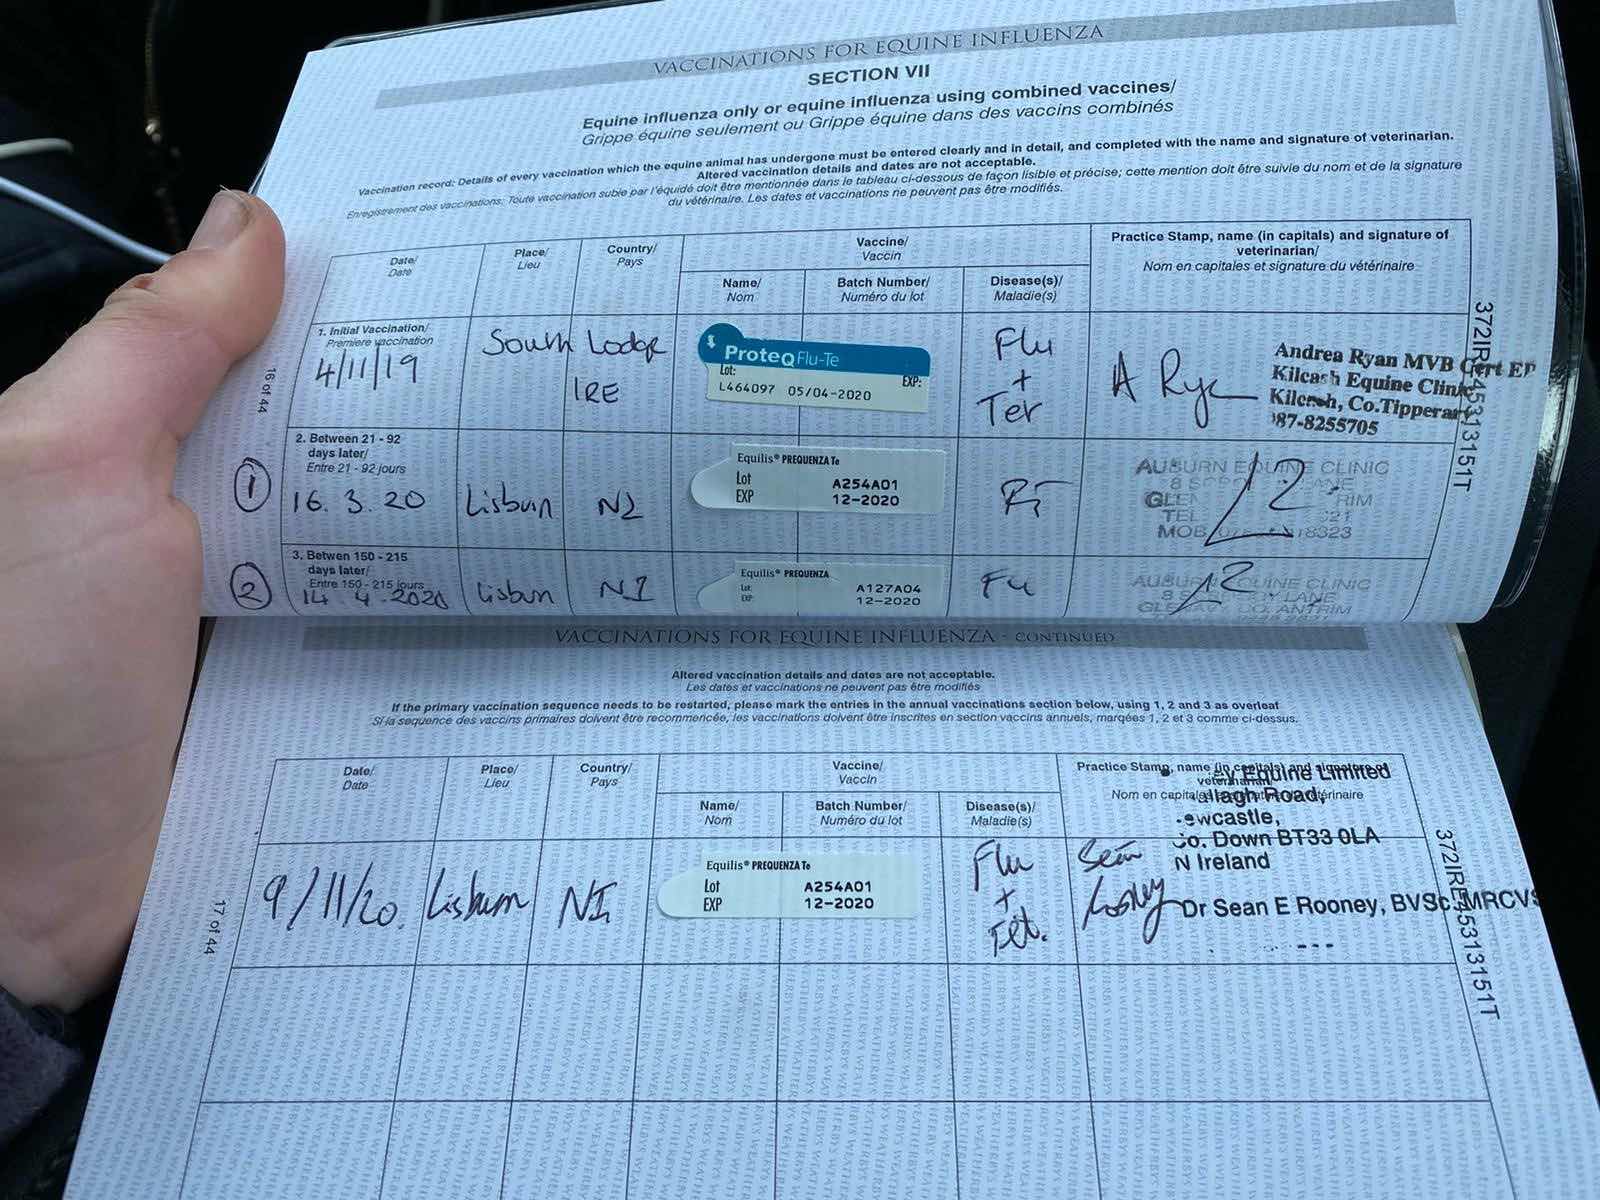 VACCINATIONS FOR EQUINE INFLUENZA
SECTION VII
Equine influenza only or equine influenza using combined vaccines/
Grippe équine seulement ou Grippe équine dans des vaccins combinés
Vaccination record: Details of every vaccination which the equine animal has undergone must be entered clearly and in detail, and completed with the name and signature of veterinarian.
Altered vaccination details and dates are not acceptable.
Enregistrement des vaccinations: Toute vaccination subie par l'équidé doit être mentionnée dans le tableau ci-dessous de façon lisible et précise; cette mention doit être suivie du nom et de la signature
du vétérinaire. Les dates et vaccinations ne peuvent pas être modifiés.
Date/
Date
Place/
Lieu
Country/
Pays
Vaccine/
Vaccin
Name/
Nom
Batch Number/
Numéro du lot
Disease(s)/
Maladie(s)
Practice Stamp, name (in capitals) and signature of
veterinarian/
Nom en capitales et signature du vétérinaire
1. Initial Vaccination/
Premiere vaccination
4/11/19
South Lodge
IRE
ProteqFlu-Te
Lot: EXP:
L464097 05/04-2020
Flu
+
Ter
A Rya
Andrea Ryan MVB Cert EP
Kilcash Equine Clinic
Kilcash, Co.Tipperary
087-8255705
16 of 44
372IRE45313151T
1
2. Between 21 - 92
days later/
Entre 21 - 92 jours
16. 3. 20
Lisburn
NI
Equilis® PREQUENZA Te
Lot A254A01
EXP 12-2020
AUBURN EQUINE CLINIC
LANE
TEL
MOB 18323
2
3. Betwen 150 - 215
days later/
Entre 150 - 215 jours
14. 4. 2020
Lisburn
NI
Equilis® PREQUENZA
Lot: A127A04
EXP: 12-2020
Flu
AUBURN EQUINE CLINIC
LANE
CO. ANTRIM
VACCINATIONS FOR EQUINE INFLUENZA - CONTINUED
Altered vaccination details and dates are not acceptable.
Les dates et vaccinations ne peuvent pas être modifiés
If the primary vaccination sequence needs to be restarted, please mark the entries in the annual vaccinations section below, using 1, 2 and 3 as overleaf
Si la sequence des vaccins primaires doivent être recommencée, les vaccinations doivent être inscrites en section vaccins annuels, marqées 1, 2 et 3 comme ci-dessus.
Date/
Date
Place/
Lieu
Country/
Pays
Vaccine/
Vaccin
Name/
Nom
Batch Number/
Numéro du lot
Disease(s)/
Maladie(s)
Practice Stamp, name (in capitals) and signature of
veterinarian/
Nom en capitales et signature du vétérinaire
9/11/20.
Lisburn
NI
Equilis® PREQUENZA Te
Lot A254A01
EXP 12-2020
Flu
+
Tet.
Seán
Rooney
Equine Limited
Road,
Newcastle,
Co. Down BT33 0LA
N Ireland
Dr Sean E Rooney, BVSc MRCVS
17 of 44
372IRE45313151T